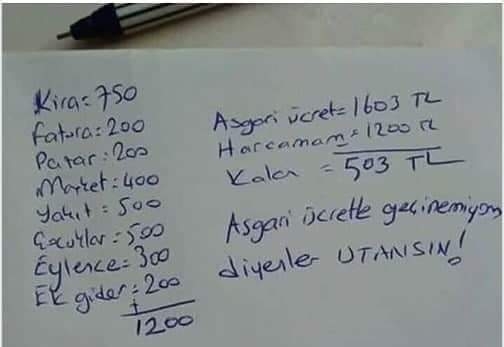 Kira=750
fatura=200
Pazar:200
Market=400
Yakıt=500
Çocuklar=500
Eylence=300
Ek gider=200
+
1200
Asgari ücret=1603 TL
Harcamam=1200 TL
Kalan = 503 TL
Asgari ücretle geçinemiyom
diyenler UTANSIN!